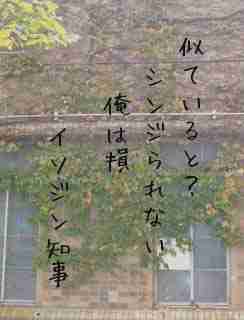 似ていると?
シンジられない
俺は損
イソジン知事